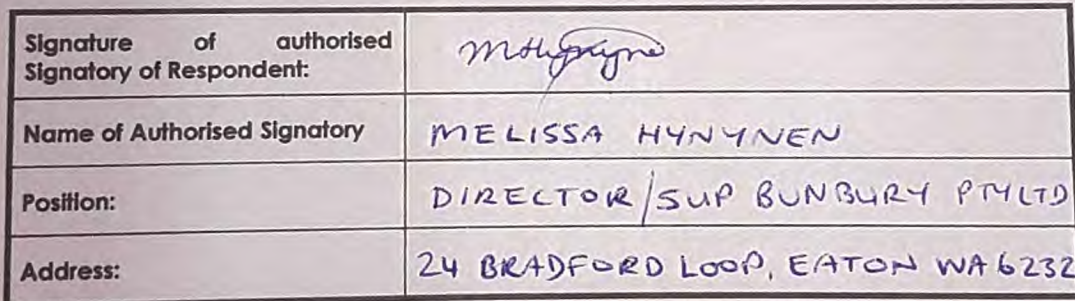 Signature of authorised
Signatory of Respondent:
Name of Authorised Signatory
MELISSA HYNYNEN
Position:
DIRECTOR/SUP BUNBURY PTY LTD
Address:
24 BRADFORD LOOP, EATON WA 6232